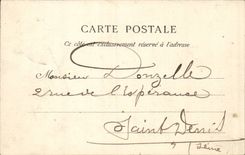 CARTE POSTALE
Ce côté est exclusivement réservé à l'adresse
Monsieur Donzelle
2 rue de l'Espérance
Saint Denis
Seine